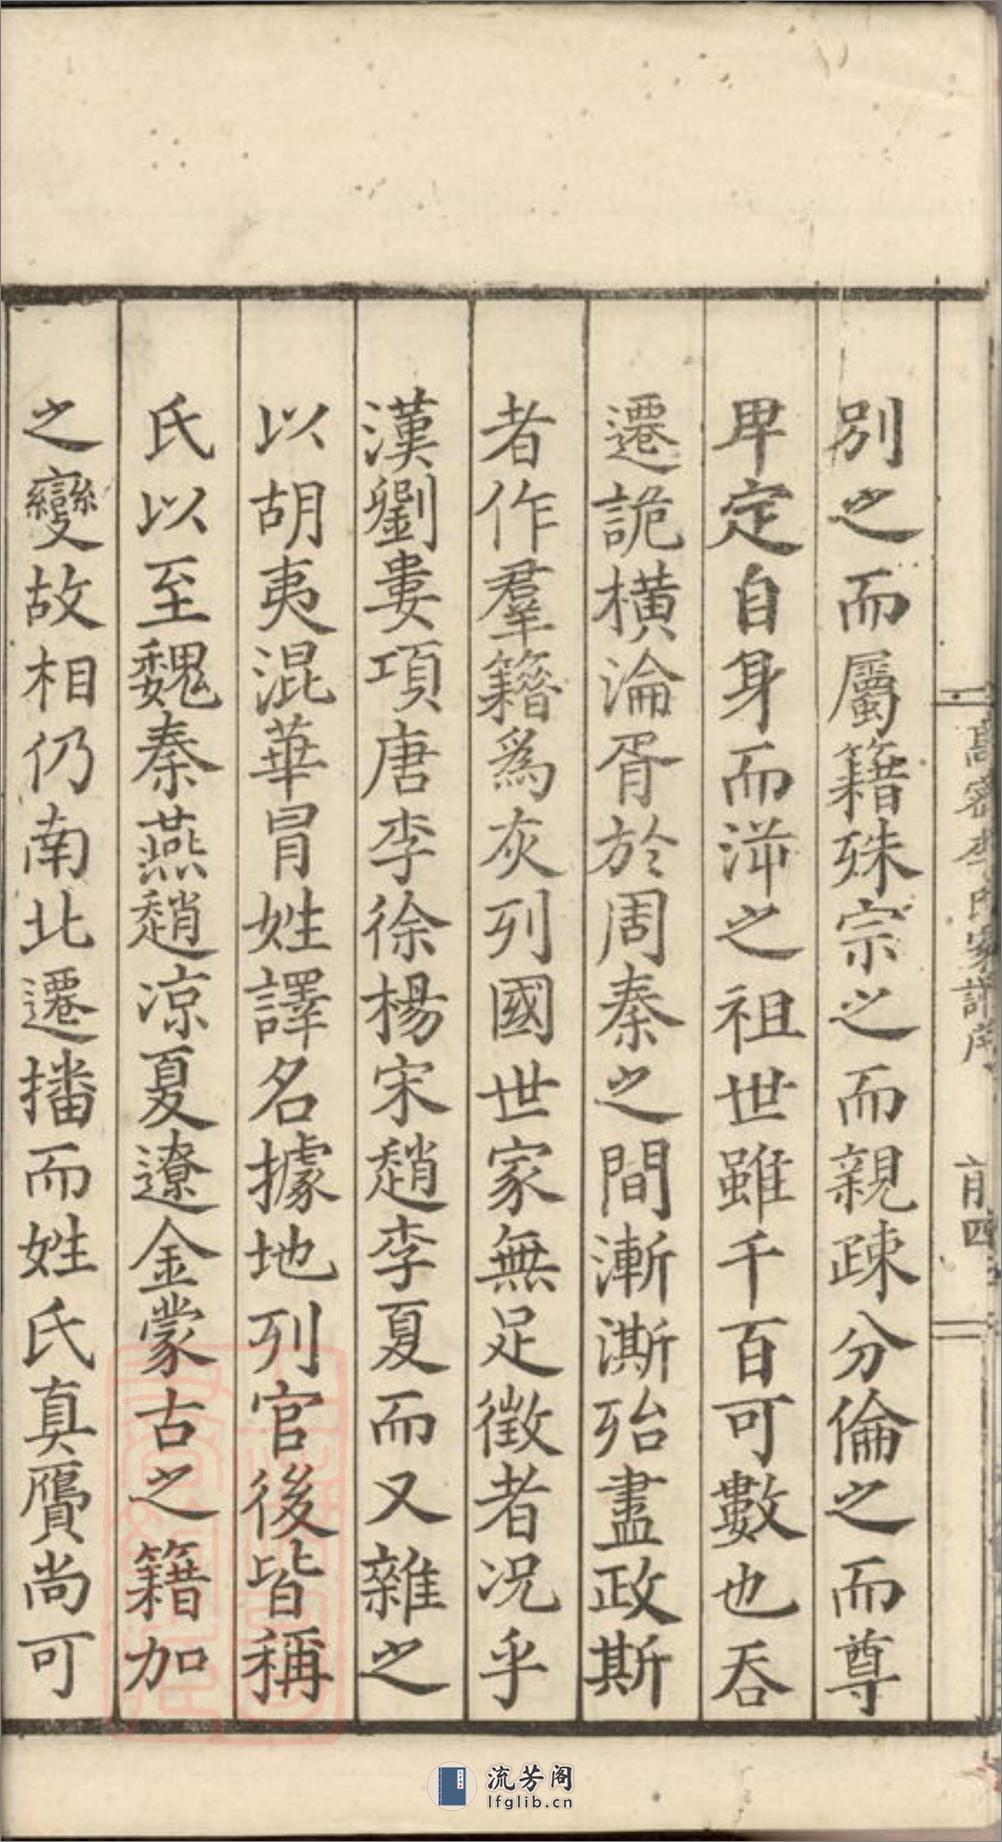 別之而屬籍殊宗之而親疎分倫之而尊
卑定自身而泝之祖世雖千百可數也吞
遷詭橫淪胥於周秦之間漸澌殆盡政斯
者作羣籍爲灰列國世家無足徵者况乎
漢劉婁項唐李徐楊宋趙李夏而又雜之
以胡夷混華冒姓譯名據地列官後皆稱
氏以至魏秦燕趙凉夏遼金蒙古之籍加
之變故相仍南北遷播而姓氏真贋尚可
高密李氏家譜序
前四
流芳阁
lfglib.cn